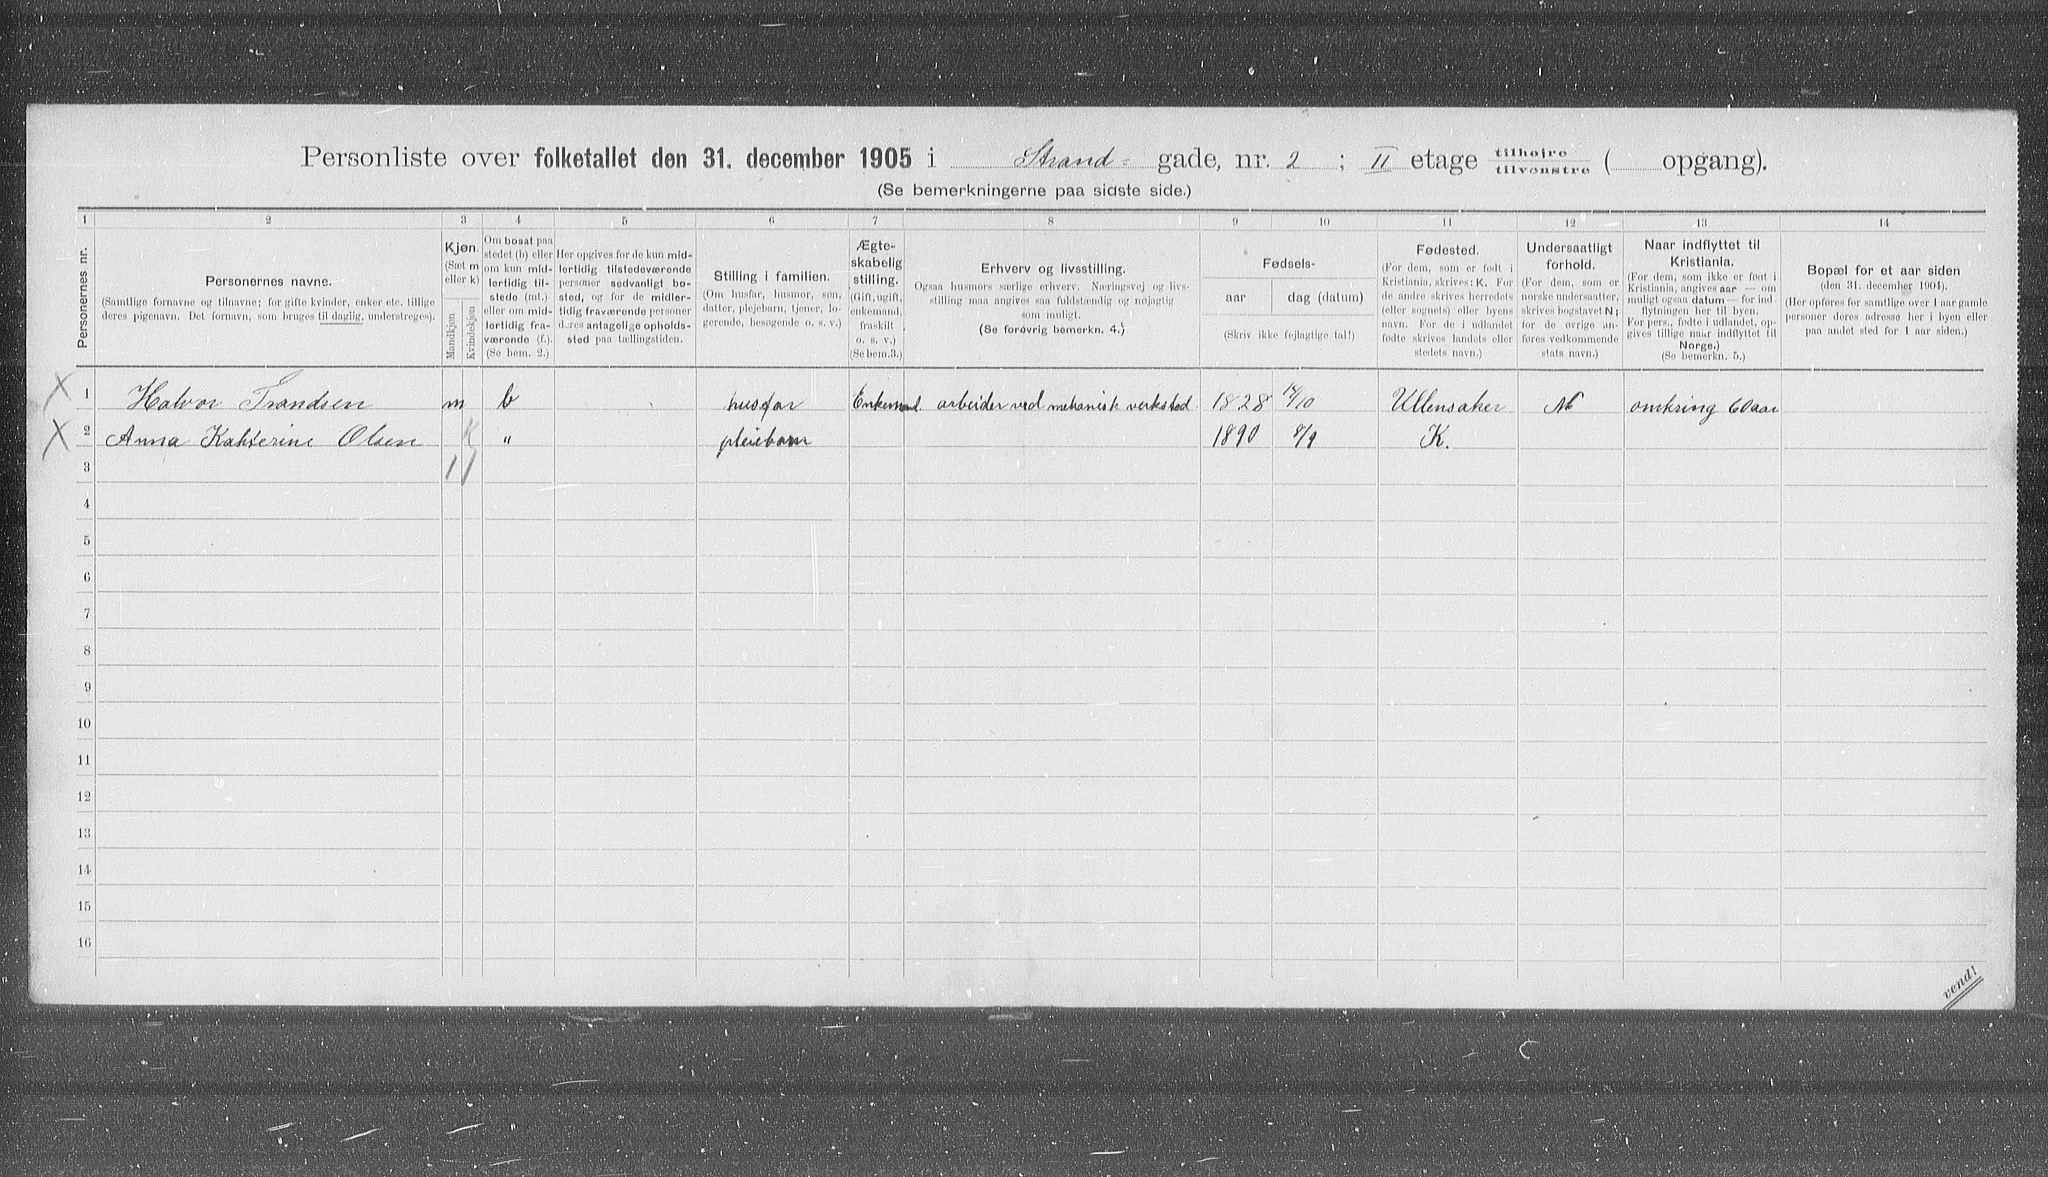 Personliste over folketallet den 31. december 1905 i Strand- gade, nr. 2 ; II etage tilhøjre tilvenstre ( opgang).
(Se bemerkningerne paa sidste side.)
1 2 3 4 5 6 7 8 9 10 11 12 13 14
Personernes nr.
Personernes navne.
(Samtlige fornavne og tilnavne; for gifte kvinder, enker etc. tillige
deres pigenavn. Det fornavn, som bruges til daglig, understreges).
Kjøn.
(Sæt m
eller k)
Mandkjøn
Kvindekjøn
Om bosat paa
stedet (b) eller
om kun mid-
lertidig til-
stede (mt.)
eller om mid-
lertidig fra-
værende (f.).
(Se bem. 2.)
Her opgives for de kun mid-
lertidig tilstedeværende
personer sedvanligt bo-
sted, og for de midler-
tidig fraværende personer
deres antagelige opholds-
sted paa tællingstiden.
Stilling i familien.
(Om husfar, husmor, søn,
datter, plejebarn, tjener, lo-
gerende, besøgende o. s. v.)
Ægte-
skabelig
stilling.
(Gift, ugift,
enkemand,
fraskilt
o. s. v.)
(Se bem. 3.)
Erhverv og livsstilling.
Ogsaa husmors særlige erhverv. Næringsvej og livs-
stilling maa angives saa fuldstændig og nøjagtig
som muligt.
(Se forøvrig bemerkn. 4.)
Fødsels-
aar
dag (datum)
(Skriv ikke fejlagtige tal!)
Fødested.
(For dem, som er født i
Kristiania, skrives: K. For
de andre skrives herredets
(eller sognets) eller byens
navn. For de i udlandet
fødte skrives landets eller
stedets navn.)
Undersaatligt
forhold.
(For dem, som er
norske undersaatter,
skrives bogstavet N;
for de øvrige an-
føres vedkommende
stats navn.)
Naar indflyttet til
Kristiania.
(For dem, som ikke er født i
Kristiania, angives aar — om
muligt ogsaa datum — for ind-
flytningen her til byen.
For pers., fødte i udlandet, op-
gives tillige naar indflyttet til
Norge.)
(Se bemerkn. 5.)
Bopæl for et aar siden
(den 31. december 1904).
(Her opføres for samtlige over 1 aar gamle
personer deres adresse her i byen eller
paa andet sted for 1 aar siden.)
X 1 Halvor Trandsen m b husfar Enkemand. arbeider ved mekanisk verksted 1828 14/10 Ullensaker N omkring 60 aar
X 2 Anna Kahterine Olsen K " pleiebarn 1890 8/9 K.
3 1 1
4
5
6
7
8
9
10
11
12
13
14
15
16
vend!